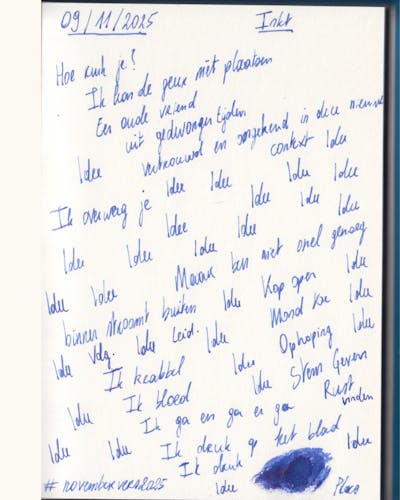 09/11/2025 Inkt
Hoe ruik je?
Ik kon de geur niet plaatsen
Een oude vriend
uit gedwongen tijden
Idee vertrouwd en ongekend in deze nieuwe
Idee Idee Idee context Idee
Ik overweeg je Idee Idee Idee
Idee Idee Idee Idee Idee
Idee Idee Maar ben niet snel genoeg
binnen stroomt buiten Idee Kop open Idee
Idee Vdg. Idee Leid. Idee Mond toe Idee
Ik krabbel Idee Ophoping Idee
Idee Ik bloed Idee Stem Geven
Ik ga en ga en ga Rust
Idee Idee Ik druk op het blad vinden
Ik druk Idee
#novembervers2025 Idee Ploes